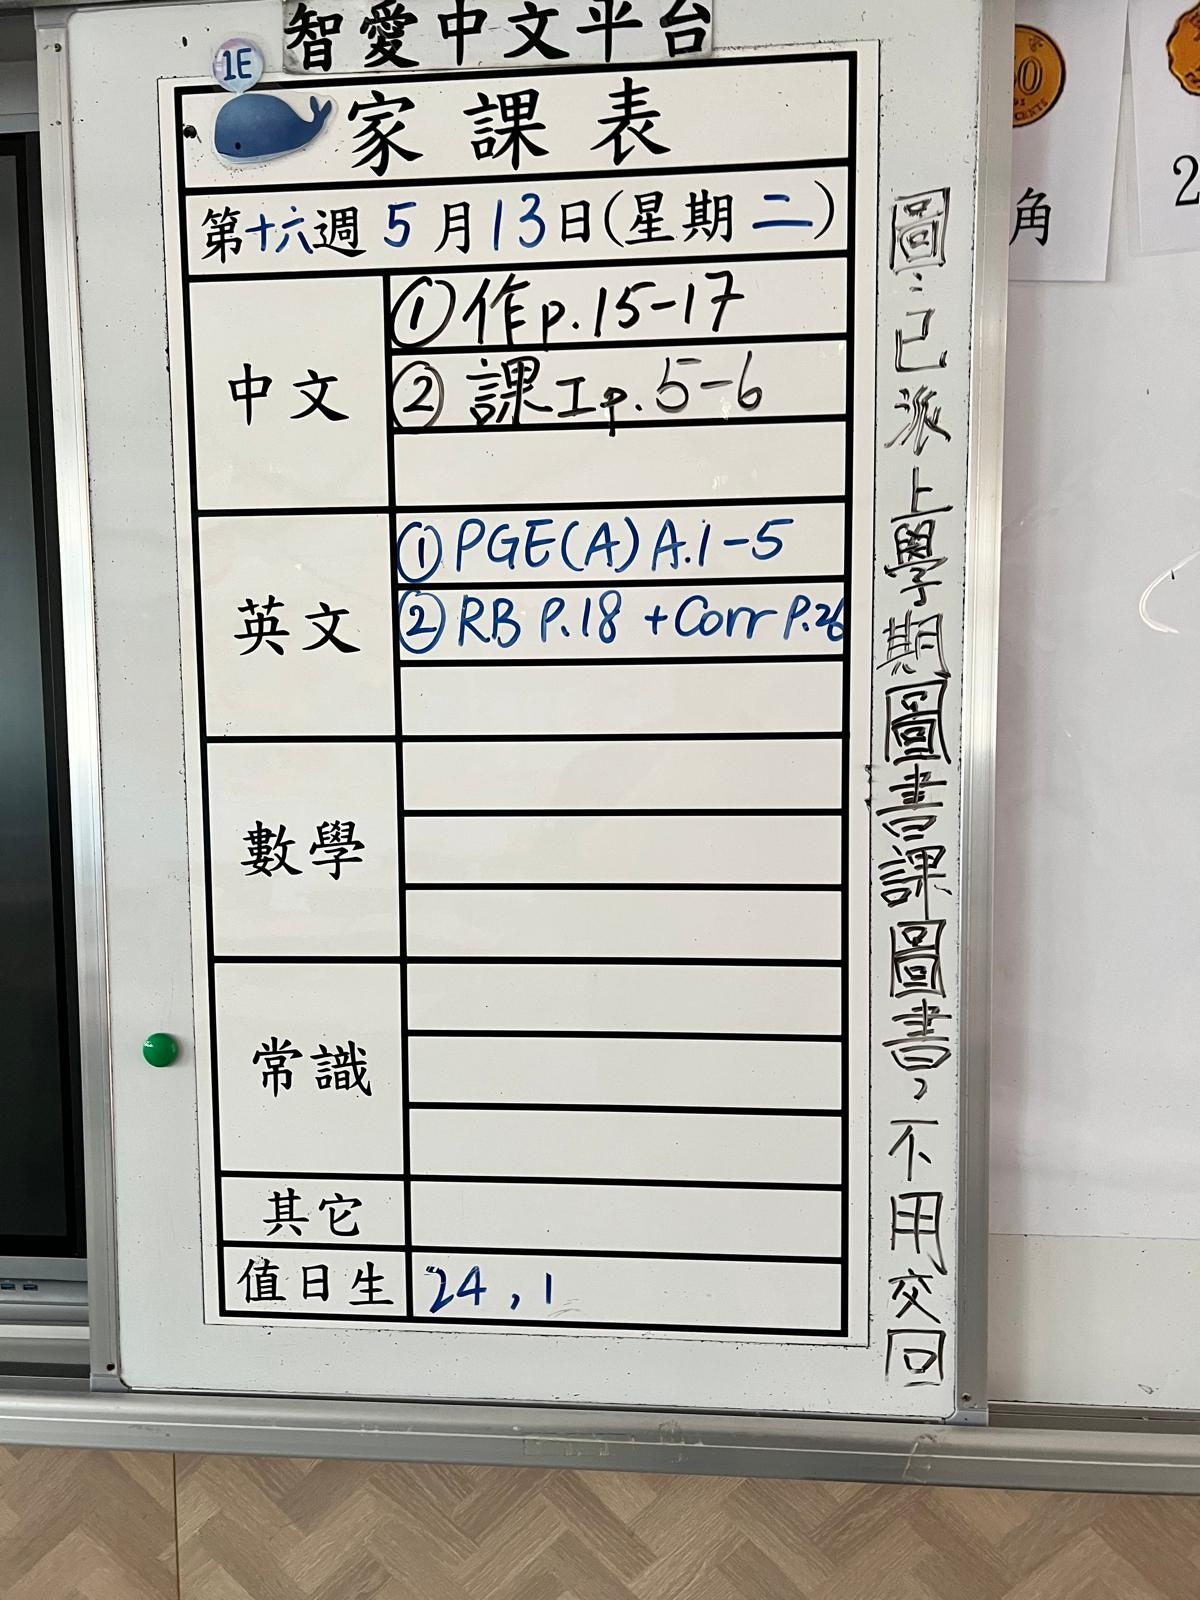 智愛中文平台
1E
家課表
第十六週 5月13日(星期二)
中文
①作p.15-17
②課工p.5-6
英文
①PGE(A) A.1-5
②RB P.18 +Corr P.26
數學
常識
其它
值日生
24,1
圖:已派上學期圖書課圖書,不用交回
角
2